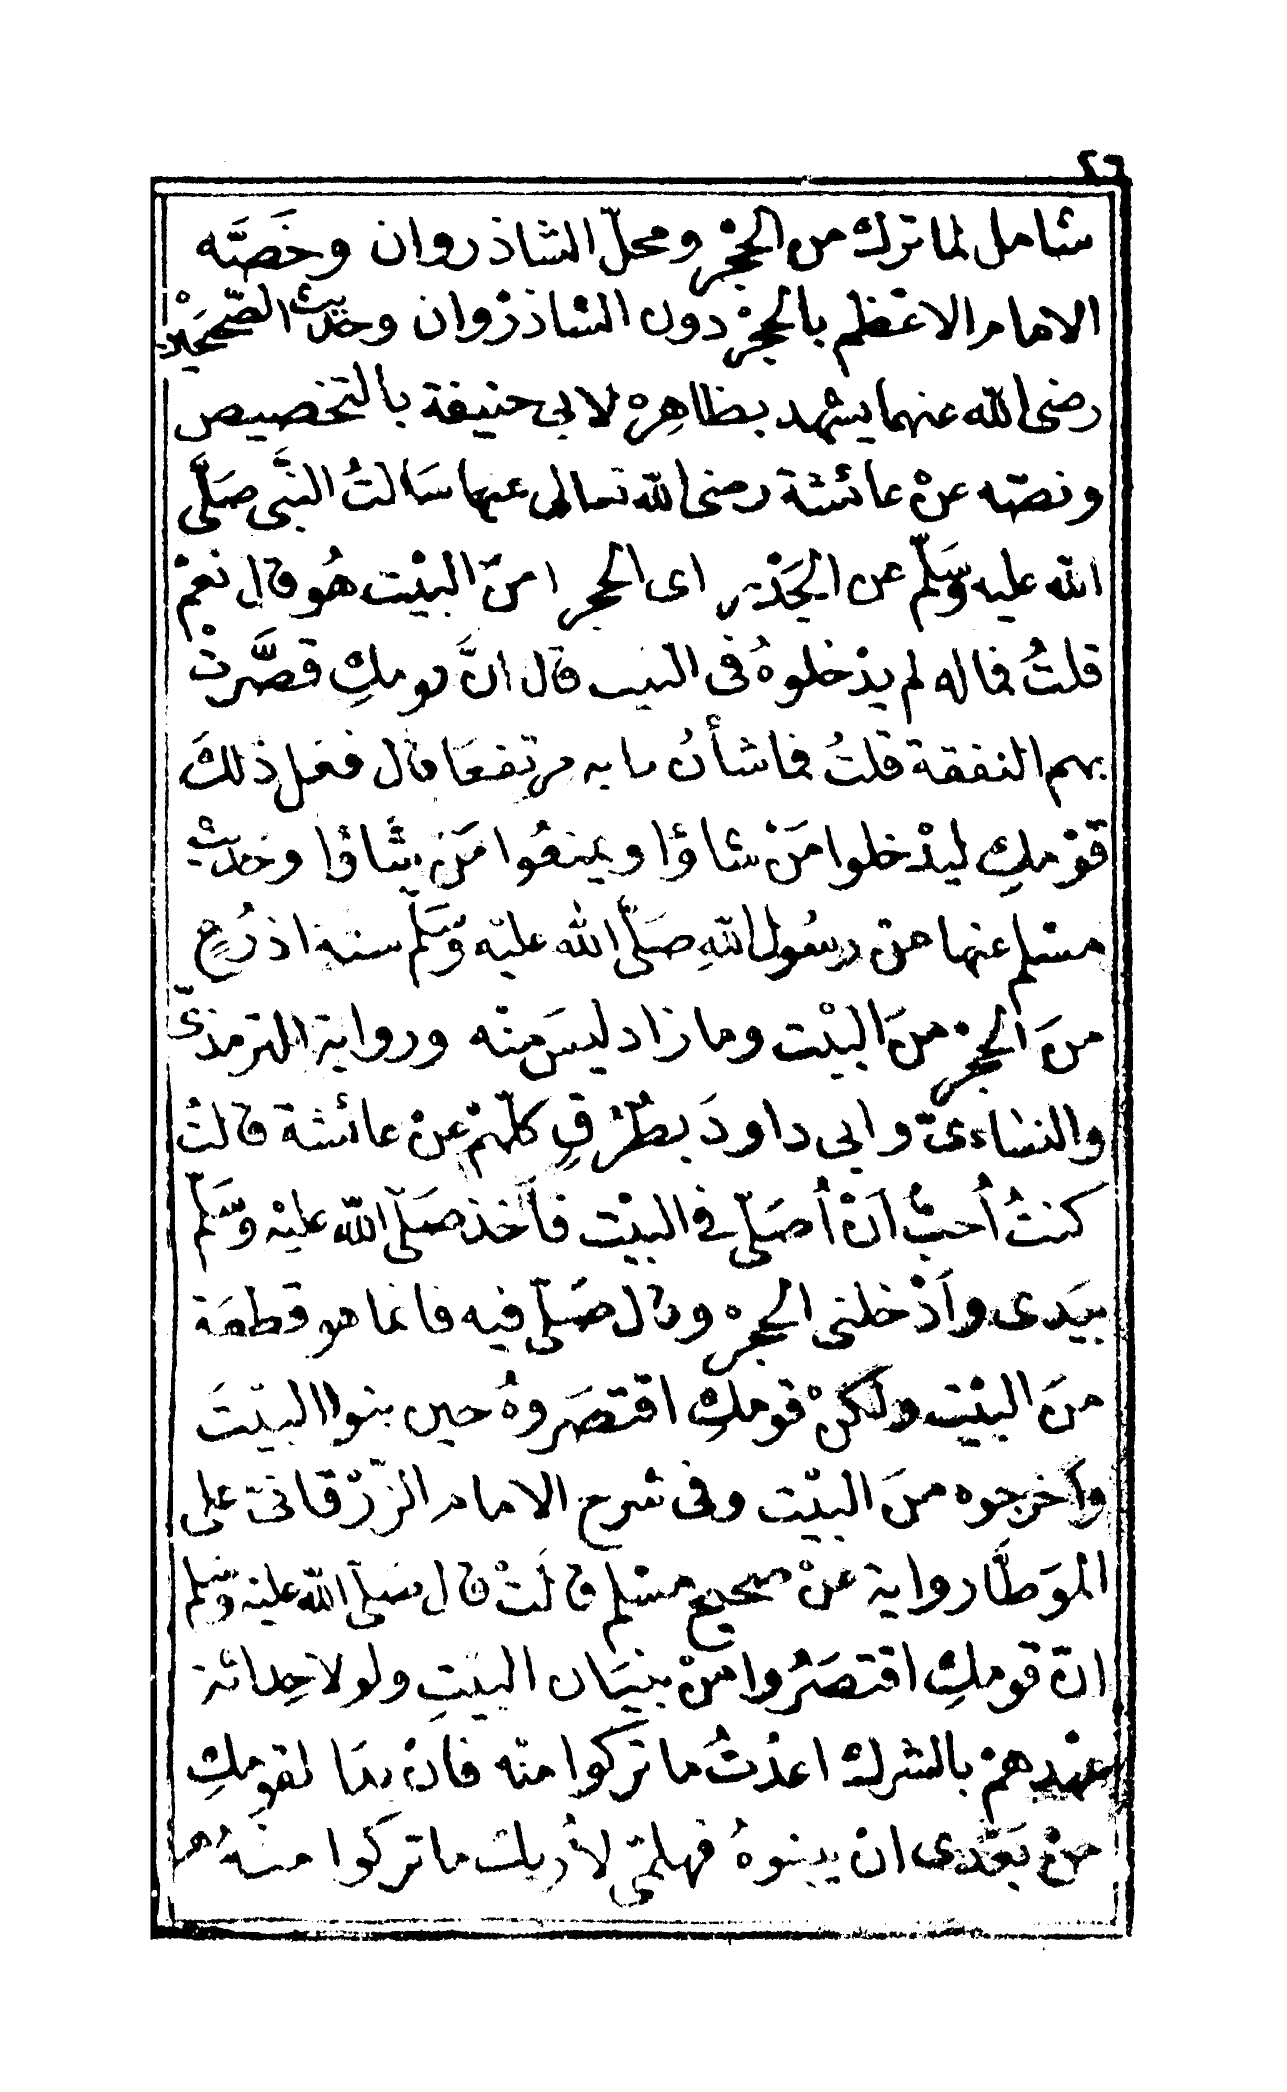 ٤٦
شامل لما ترك من الحِجْر ومحلّ الشاذروان وخَصَّه
الامام الاعْظم بالحِجْر دون الشاذرْوان وحديث الصّحيحَيْن
رضى الله عنهما يشهد بظاهِرهِ لابى حنيفة بالتخصيص
ونصّه عنْ عائشة رضى الله تعالى عنها سَالتُ النَّبى صَلَّى
الله عليه وسَلّم عن الجَدْر اى الحجر امنَ البيْت هُو قال نعَمْ
قلتُ فما له لم يدْخلوهُ فى البيت قال انَّ قومكِ قصَّرتْ
بهم النفقة قلتُ فما شأنُ بابه مرتفعَا قال فعَل ذلكَ
قوْمكِ ليدْخلوا مَنْ شاؤا ويمنعُوا مَنْ شَاؤا وحديث
مسْلم عنها عن رسُول اللهِ صَلّى الله عليْه وَسَلّم ستة اذرُعٍ
منَ الحِجْر منَ البيْت وما زاد ليسَ منْه ورواية الترمذىّ
والنسَاءىّ وابى داودَ بطُرْقٍ كلّهمْ عنْ عائشة قالتْ
كنتُ أحبُّ انْ أصَلّى فى البيْت فأخذ صَلّى الله عليْه وَسَلّم
بيَدى وادْخلنى الحجْر وقال صَلّى فيه فانما هو قطعَة
منَ البيْت ولكنْ قومكِ اقتصَروهُ حين بنوا البيْتَ
واخرجوه منَ البيْت وفى شرح الامام الزّرْقانىّ على
الموَطَّا رواية عنْ صحيح مسْلم قالَتْ قال صَلّى الله عليْه وسَلم
انّ قومكِ اقتصَرُوا منْ بنيَان البيتِ ولولا حِداثة
عهْدهمْ بالشرك اعدْتُ ما تركوا منْه فانْ بدَا لقومكِ
منْ بَعْدى انْ يبنوهُ فهلمّى لأريك ما تركوا منْهُ